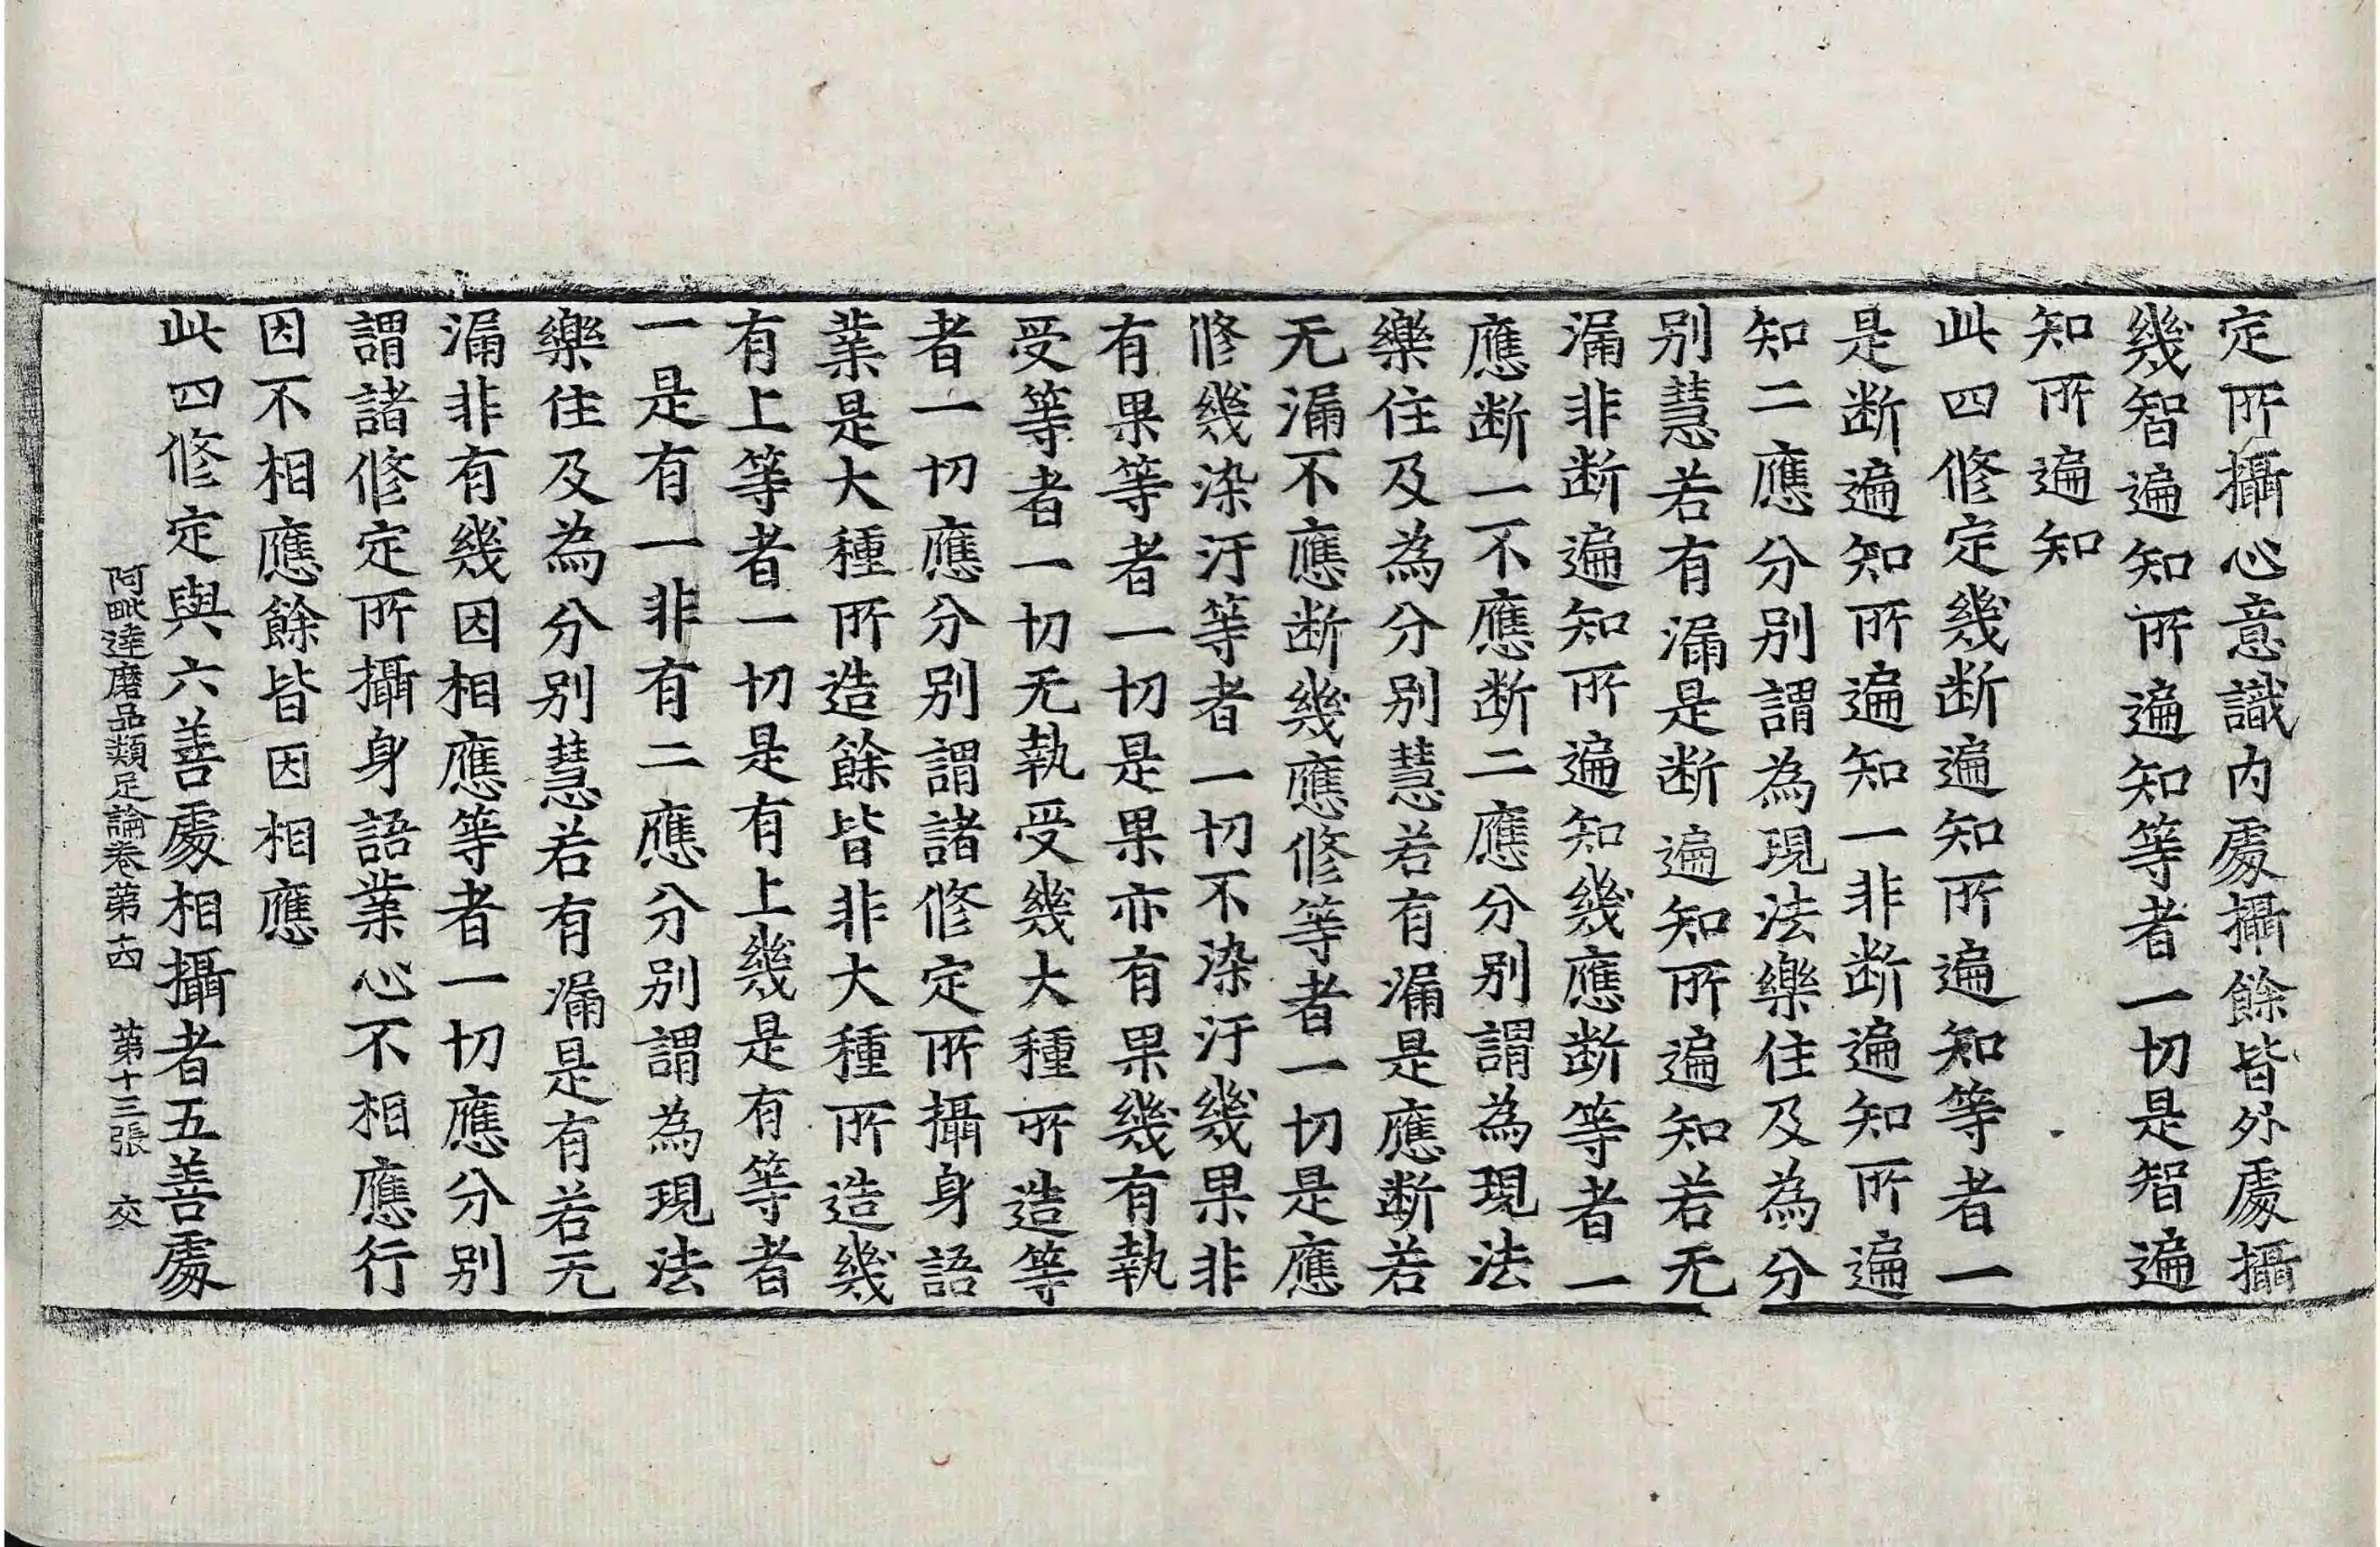 定所攝心意識内處攝餘皆外處攝
幾智遍知所遍知等者一切是智遍
知所遍知
此四修定幾断遍知所遍知等者一
是断遍知所遍知一非断遍知所遍
知二應分别謂為現法樂住及為分
别慧若有漏是断遍知所遍知若无
漏非断遍知所遍知幾應断等者一
應断一不應断二應分别謂為現法
樂住及為分别慧若有漏是應断若
无漏不應断幾應修等者一切是應
修幾染汙等者一切不染汙幾果非
有果等者一切是果亦有果幾有執
受等者一切无執受幾大種所造等
者一切應分别謂諸修定所攝身語
業是大種所造餘皆非大種所造幾
有上等者一切是有上幾是有等者
一是有一非有二應分别謂為現法
樂住及為分别慧若有漏是有若无
漏非有幾因相應等者一切應分别
謂諸修定所攝身語業心不相應行
因不相應餘皆因相應
此四修定與六善處相攝者五善處
阿毗達磨品類足論卷第十四 第十三張 交